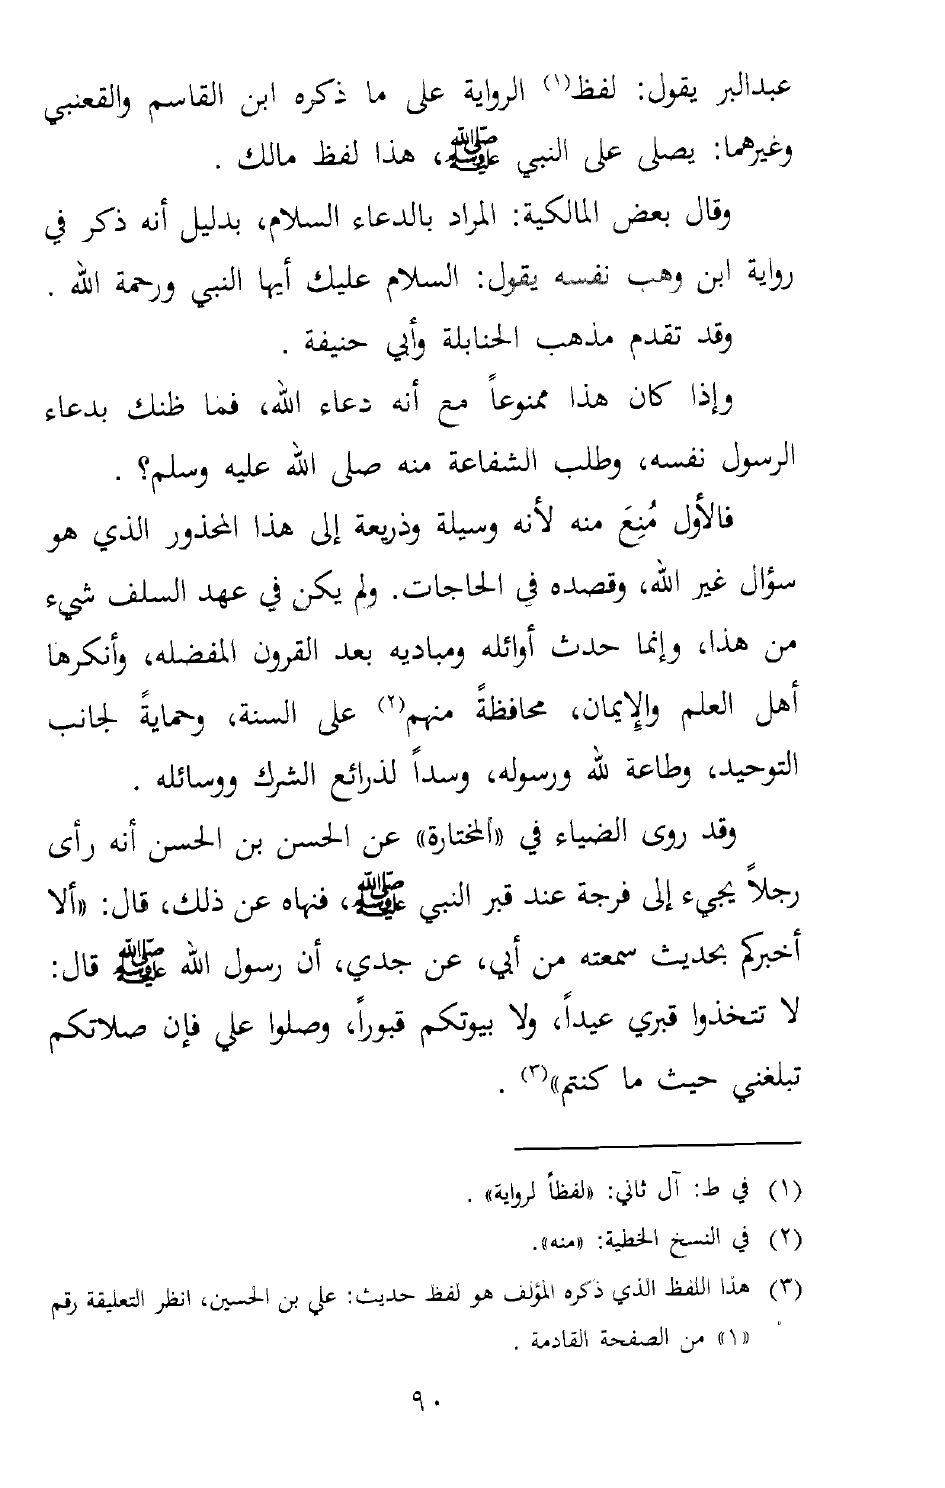 عبدالبر يقول: لفظ(١) الرواية على ما ذكره ابن القاسم والقعنبي
وغيرهما: يصلى على النبي ﷺ، هذا لفظ مالك .
وقال بعض المالكية: المراد بالدعاء السلام، بدليل أنه ذكر في
رواية ابن وهب نفسه يقول: السلام عليك أيها النبي ورحمة الله .
وقد تقدم مذهب الحنابلة وأبي حنيفة .
وإذا كان هذا ممنوعاً مع أنه دعاء الله، فما ظنك بدعاء
الرسول نفسه، وطلب الشفاعة منه صلى الله عليه وسلم؟ .
فالأول مُنِعَ منه لأنه وسيلة وذريعة إلى هذا المحذور الذي هو
سؤال غير الله، وقصده في الحاجات. ولم يكن في عهد السلف شيء
من هذا، وإنما حدث أوائله ومباديه بعد القرون المفضله، وأنكرها
أهل العلم والإيمان، محافظةً منهم(٢) على السنة، وحمايةً لجانب
التوحيد، وطاعة لله ورسوله، وسداً لذرائع الشرك ووسائله .
وقد روى الضياء في «المختارة» عن الحسن بن الحسن أنه رأى
رجلاً يجيء إلى فرجة عند قبر النبي ﷺ، فنهاه عن ذلك، قال: «ألا
أخبركم بحديث سمعته من أبي، عن جدي، أن رسول الله ﷺ قال:
لا تتخذوا قبري عيداً، ولا بيوتكم قبوراً، وصلوا علي فإن صلاتكم
تبلغني حيث ما كنتم»(٣) .
(١) في ط: آل ثاني: «لفظاً لرواية» .
(٢) في النسخ الخطية: «منه».
(٣) هذا اللفظ الذي ذكره المؤلف هو لفظ حديث: علي بن الحسين، انظر التعليقة رقم
«١» من الصفحة القادمة .
٩٠